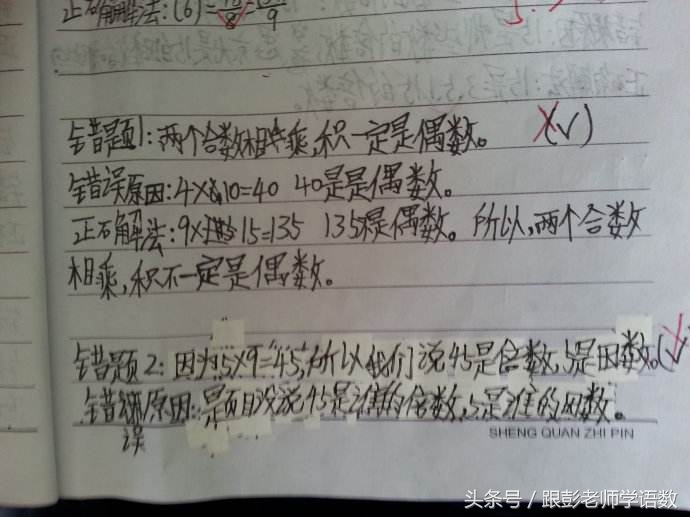 正确解法:(6)=
错错题1:两个合数相乘,积一定是偶数。 (√)
错误原因:4×10=40 40是是偶数。
正确解法:9×15=135 135不是偶数。所以,两个合数
相乘,积不一定是偶数。
错题2:因为5×9=45,所以我们说45是倍数,5是因数。(
错误原因:题目没说45是谁的倍数,5是谁的因数。
SHENG QUAN ZHI PIN
头条号/跟彭老师学语数